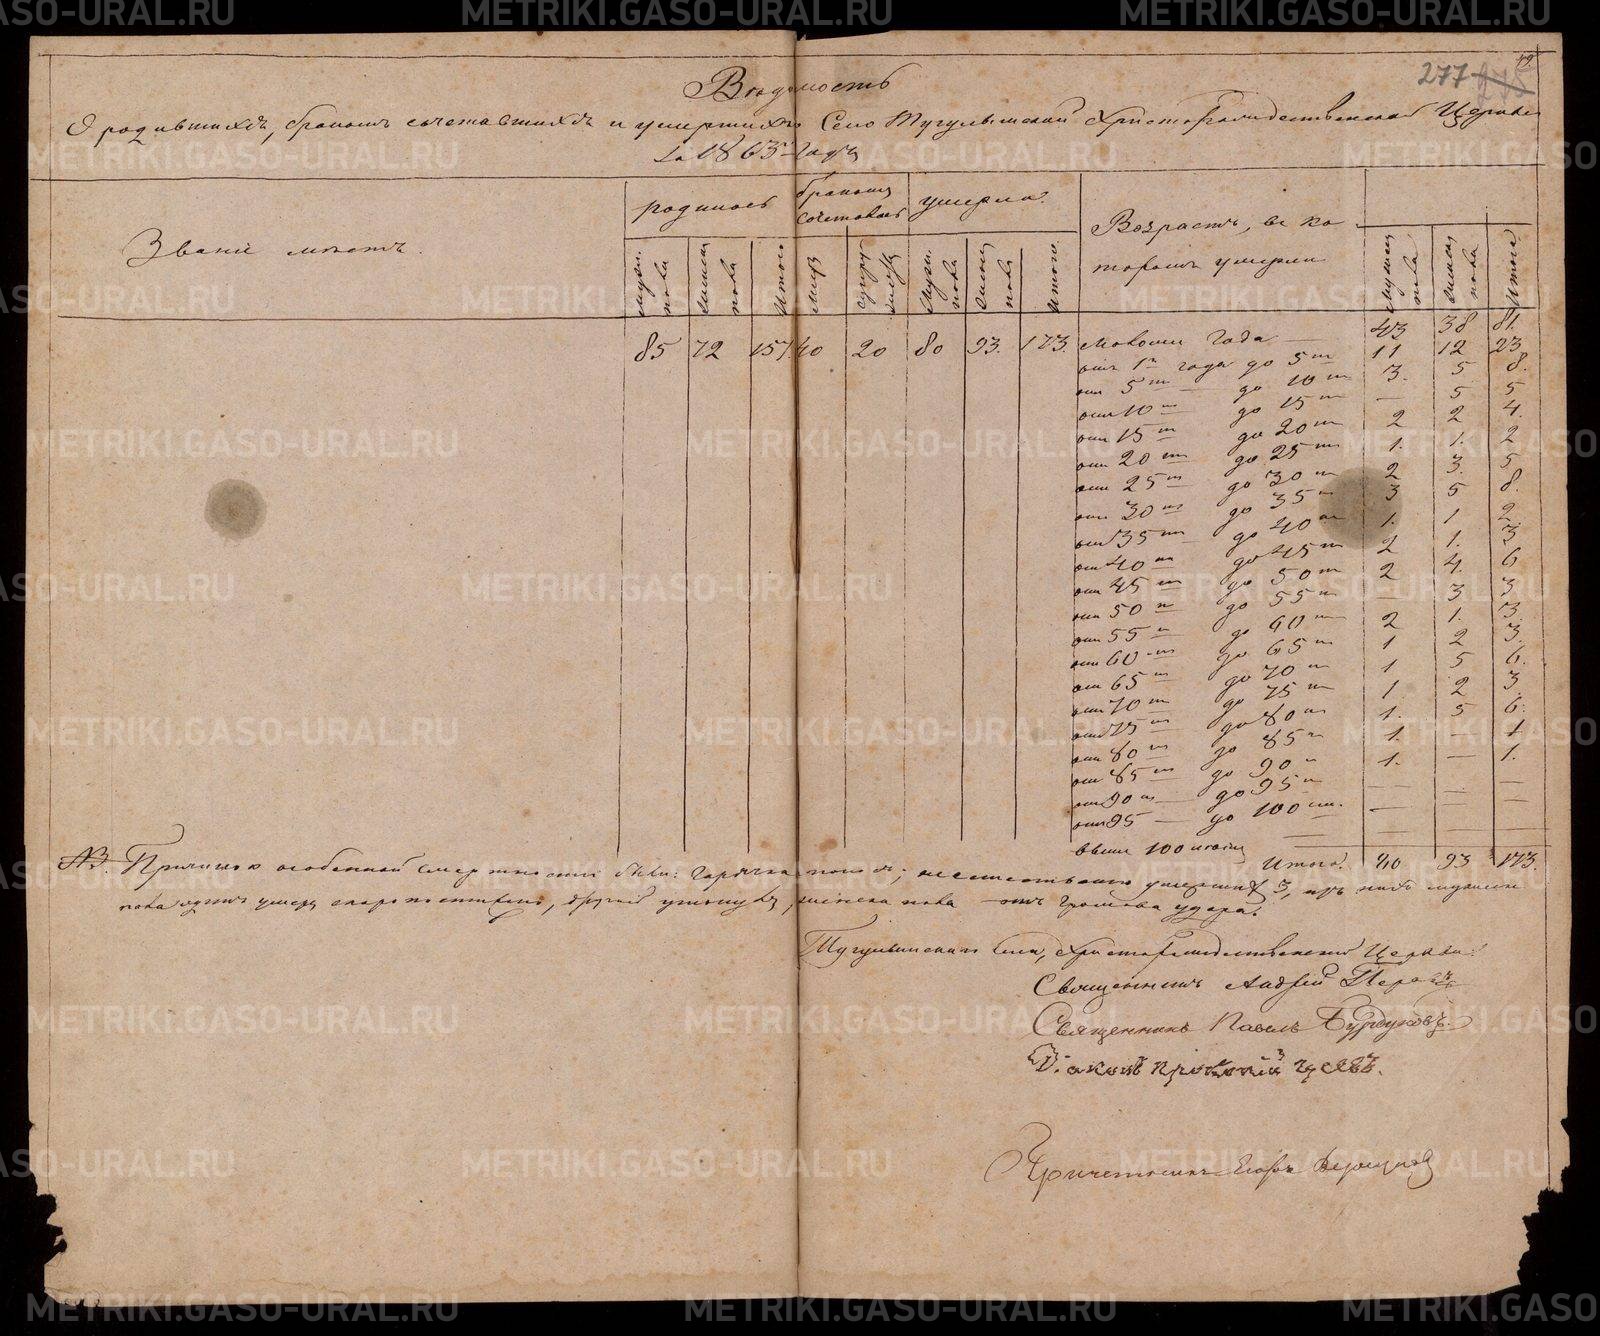 277
Ведомость
О родившихся, бракомъ сочетавшихся и умершихъ Села Тугулымской Христорождественской Церкви
За 1863 годъ
родилось
бракомъ сочетались
умерло.
Возрастъ, въ ко-
торомъ умерли
Звание местъ.
мужск. пола
женска пола
Итого
мужск. пола
женск. пола
Итого.
мужеска пола
женска пола
Итого
85 72 157. 40 20 80 93. 173.
моложе года — 43 38 81.
отъ 1го года до 5ти 11 12 23
отъ 5ти — до 10ти 3. 5 8.
отъ 10ти до 15ти — 5 5
отъ 15ти до 20ти 2 2 4.
отъ 20ти до 25ти 1. 1. 2
отъ 25ти до 30ти 2 3. 5
отъ 30ти до 35ти 3 5 8.
отъ 35ти до 40ти 1. 1 2
отъ 40ти до 45ти 2 1. 3
отъ 45ти до 50ти 2 4. 6
отъ 50ти до 55ти — 3 3
отъ 55ти до 60ти 2 1. 3
отъ 60ти до 65ти 1 2 3.
отъ 65ти до 70ти 1 5 6.
отъ 70ти до 75ти 1. 2 3.
отъ 75ти до 80ти 1. 5 6.
отъ 80ти до 85ти 1. — 1
отъ 85ти до 90ти 1. — 1.
отъ 90ти — до 95ти — — —
отъ 95 — до 100 — — —
выше 100 — — —
Итого. 80 93 173.
NB. Причиною особенной смертности были: горячка, поносъ; неестественно умершихъ 3, изъ нихъ мужеска
пола одинъ умеръ скоропостижно, другой утонулъ, женска пола — отъ громова удара.
Тугулымскаго села, Христорождественской Церкви
Священникъ Андрей
Священникъ Павелъ Бурдуковъ.
Диаконъ
Причетникъ Егоръ
METRIKI.GASO-URAL.RU